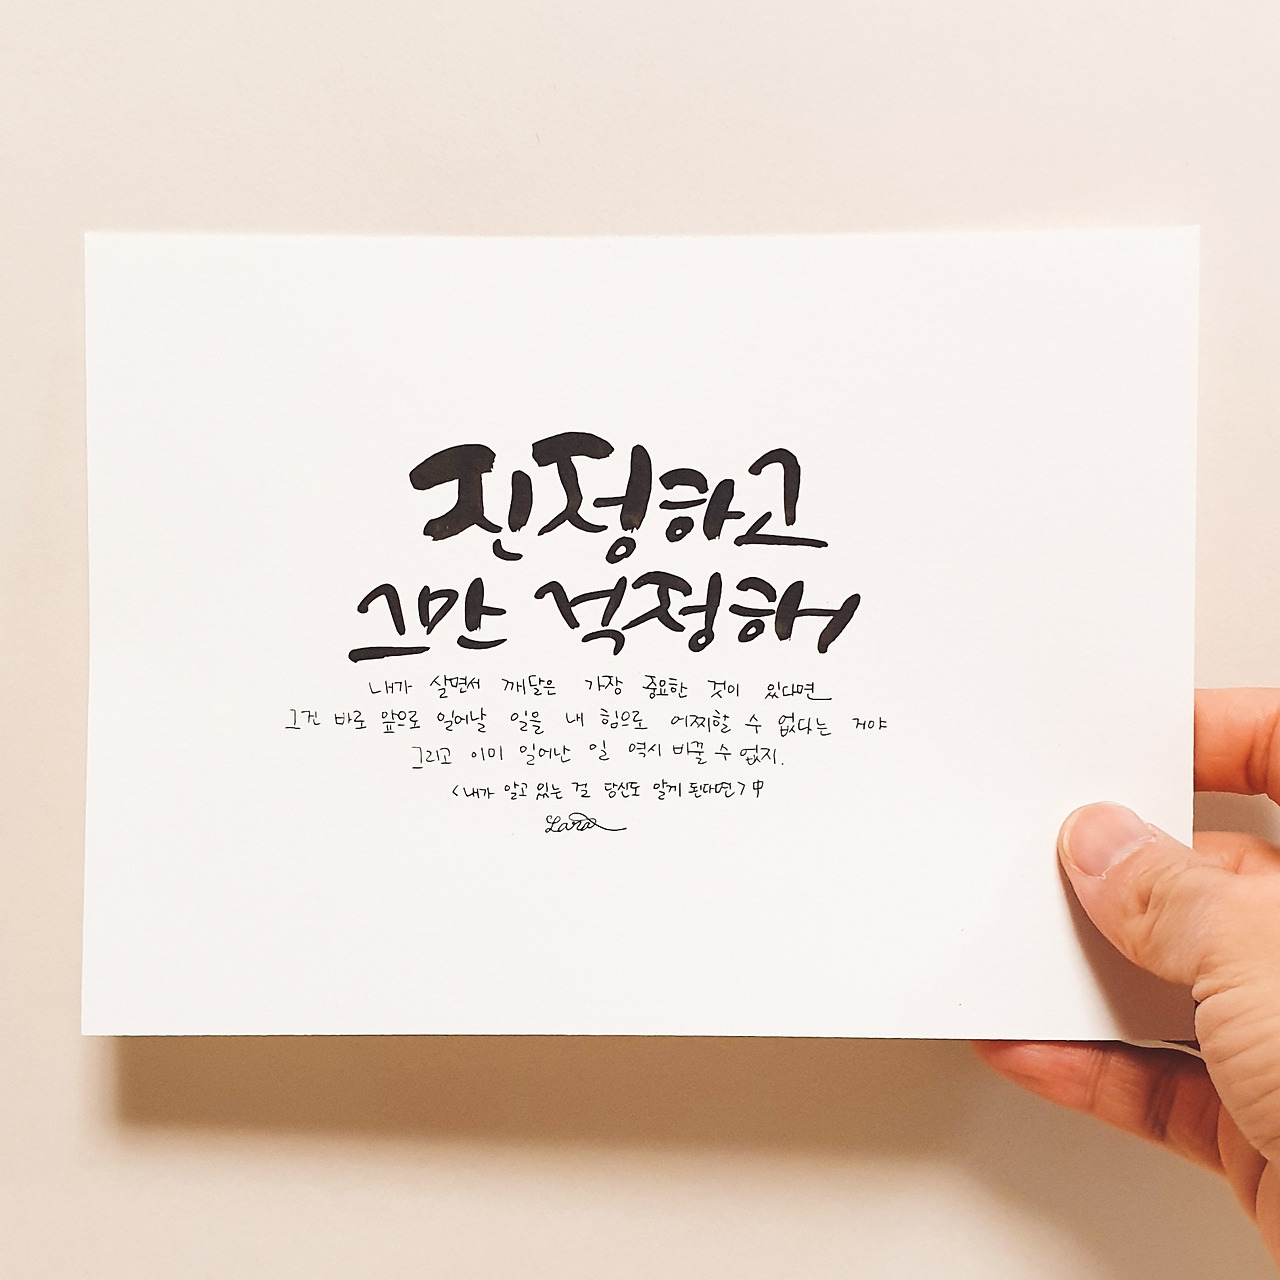 진정하고
그만 걱정해
내가 살면서 깨달은 가장 중요한 것이 있다면
그건 바로 앞으로 일어날 일을 내 힘으로 어찌할 수 없다는 거야
그리고 이미 일어난 일 역시 바꿀 수 없지.
<내가 알고 있는 걸 당신도 알게 된다면> 中
Lara